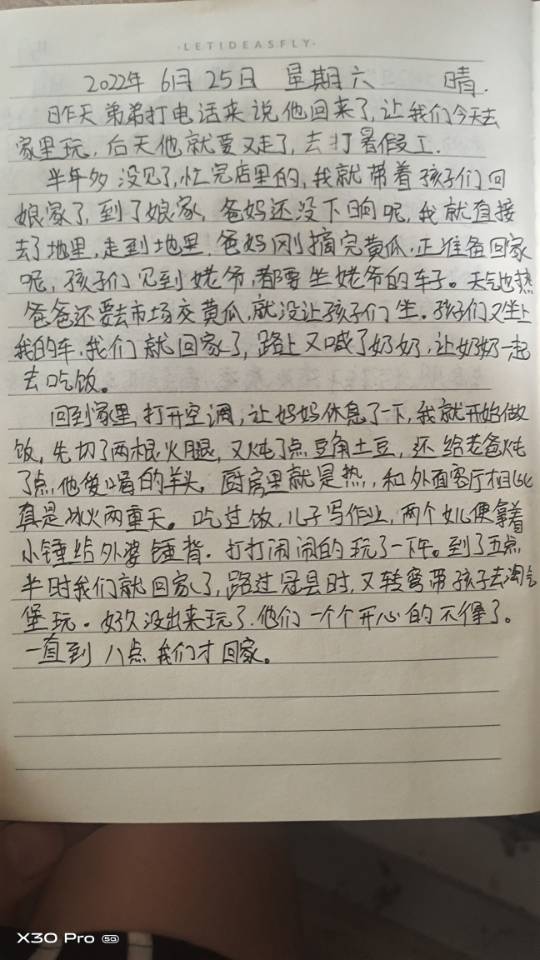 ·LETIDEASFLY·
2022年 6月 25日 星期六 晴.
昨天弟弟打电话来说他回来了,让我们今天去
家里玩,后天他就要又走了,去打暑假工.
半年多没见了,忙完店里的,我就带着孩子们回
娘家了,到了娘家,爸妈还没下晌呢,我就直接
去了地里,走到地里.爸妈刚摘完黄瓜.正准备回家
呢,孩子们见到姥爷,都要坐姥爷的车子。天气也热
爸爸还要去市场交黄瓜,就没让孩子们坐.孩子们又坐上
我的车.我们就回家了,路上又喊了奶奶,让奶奶一起
去吃饭。
回到家里,打开空调,让妈妈休息了一下,我就开始做
饭,先切了两根火腿,又炖了点豆角土豆,还给老爸炖
了点他爱喝的羊头.厨房里就是热,和外面客厅相比
真是冰火两重天。吃过饭,儿子写作业,两个女儿便拿着
小锤给外婆锤背.打打闹闹的玩了一下午。到了五点
半时我们就回家了,路过冠县时,又转弯带孩子去淘气
堡玩.好久没出来玩了.他们一个个开心的不得了。
一直到八点我们才回家。
X30 Pro 5G